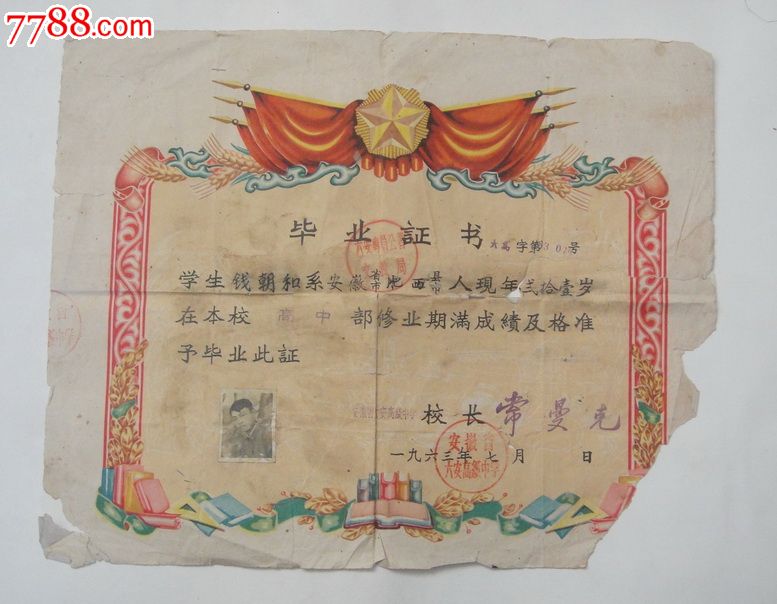 7788.com
毕业証书
六高字第 号
学生钱朝和系安徽省市肥西县市人現年贰拾壹岁
在本校高中部修业期满成績及格准
予毕业此証
校长常曼克
安徽省
六安高級中学
一九六三年七月 日